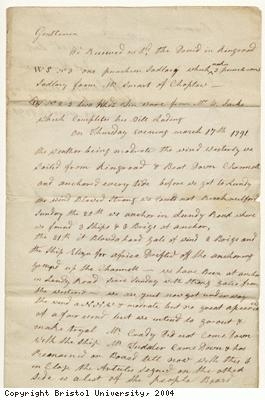 Gentlemen
We Received pr the David in Kingroad
W S No 3 one puncheon Sadlery which makes 3 puncheons
Sadlery from Mr Smart of Chepstow
No 2 & 3 two from Mr
which Compleates his Bill Lading
On Thursday evening march 17th 1791
the weather being moderate the wind Westerly we
Sailed from Kingroad & Beat Down Channell
and anchord every tide before we got to Lundy
the wind Blowed Strong we
Sunday the 20th we anchor in Lundy Road where
we found 3 Ships & 3 Brigs at anchor,
the 21st it Blowed hard Gale of wind 2 Brigs and
the Ship for africa Drifted off the anchoring
up the Channell - we have Been at anchor
in Lundy Road Since Sunday with Strong Gales from
the Westward we are just now got under way
the wind at & moderate but no great apearance
of a fair wind but we intend to go out &
make tryal Mr Did not Come Down
with the Ship Mr Came Down & has
Remained on Board till now with this I
in Close the Articles Signed on the other
Side is a list of the people Board
Copyright Bristol University, 2004